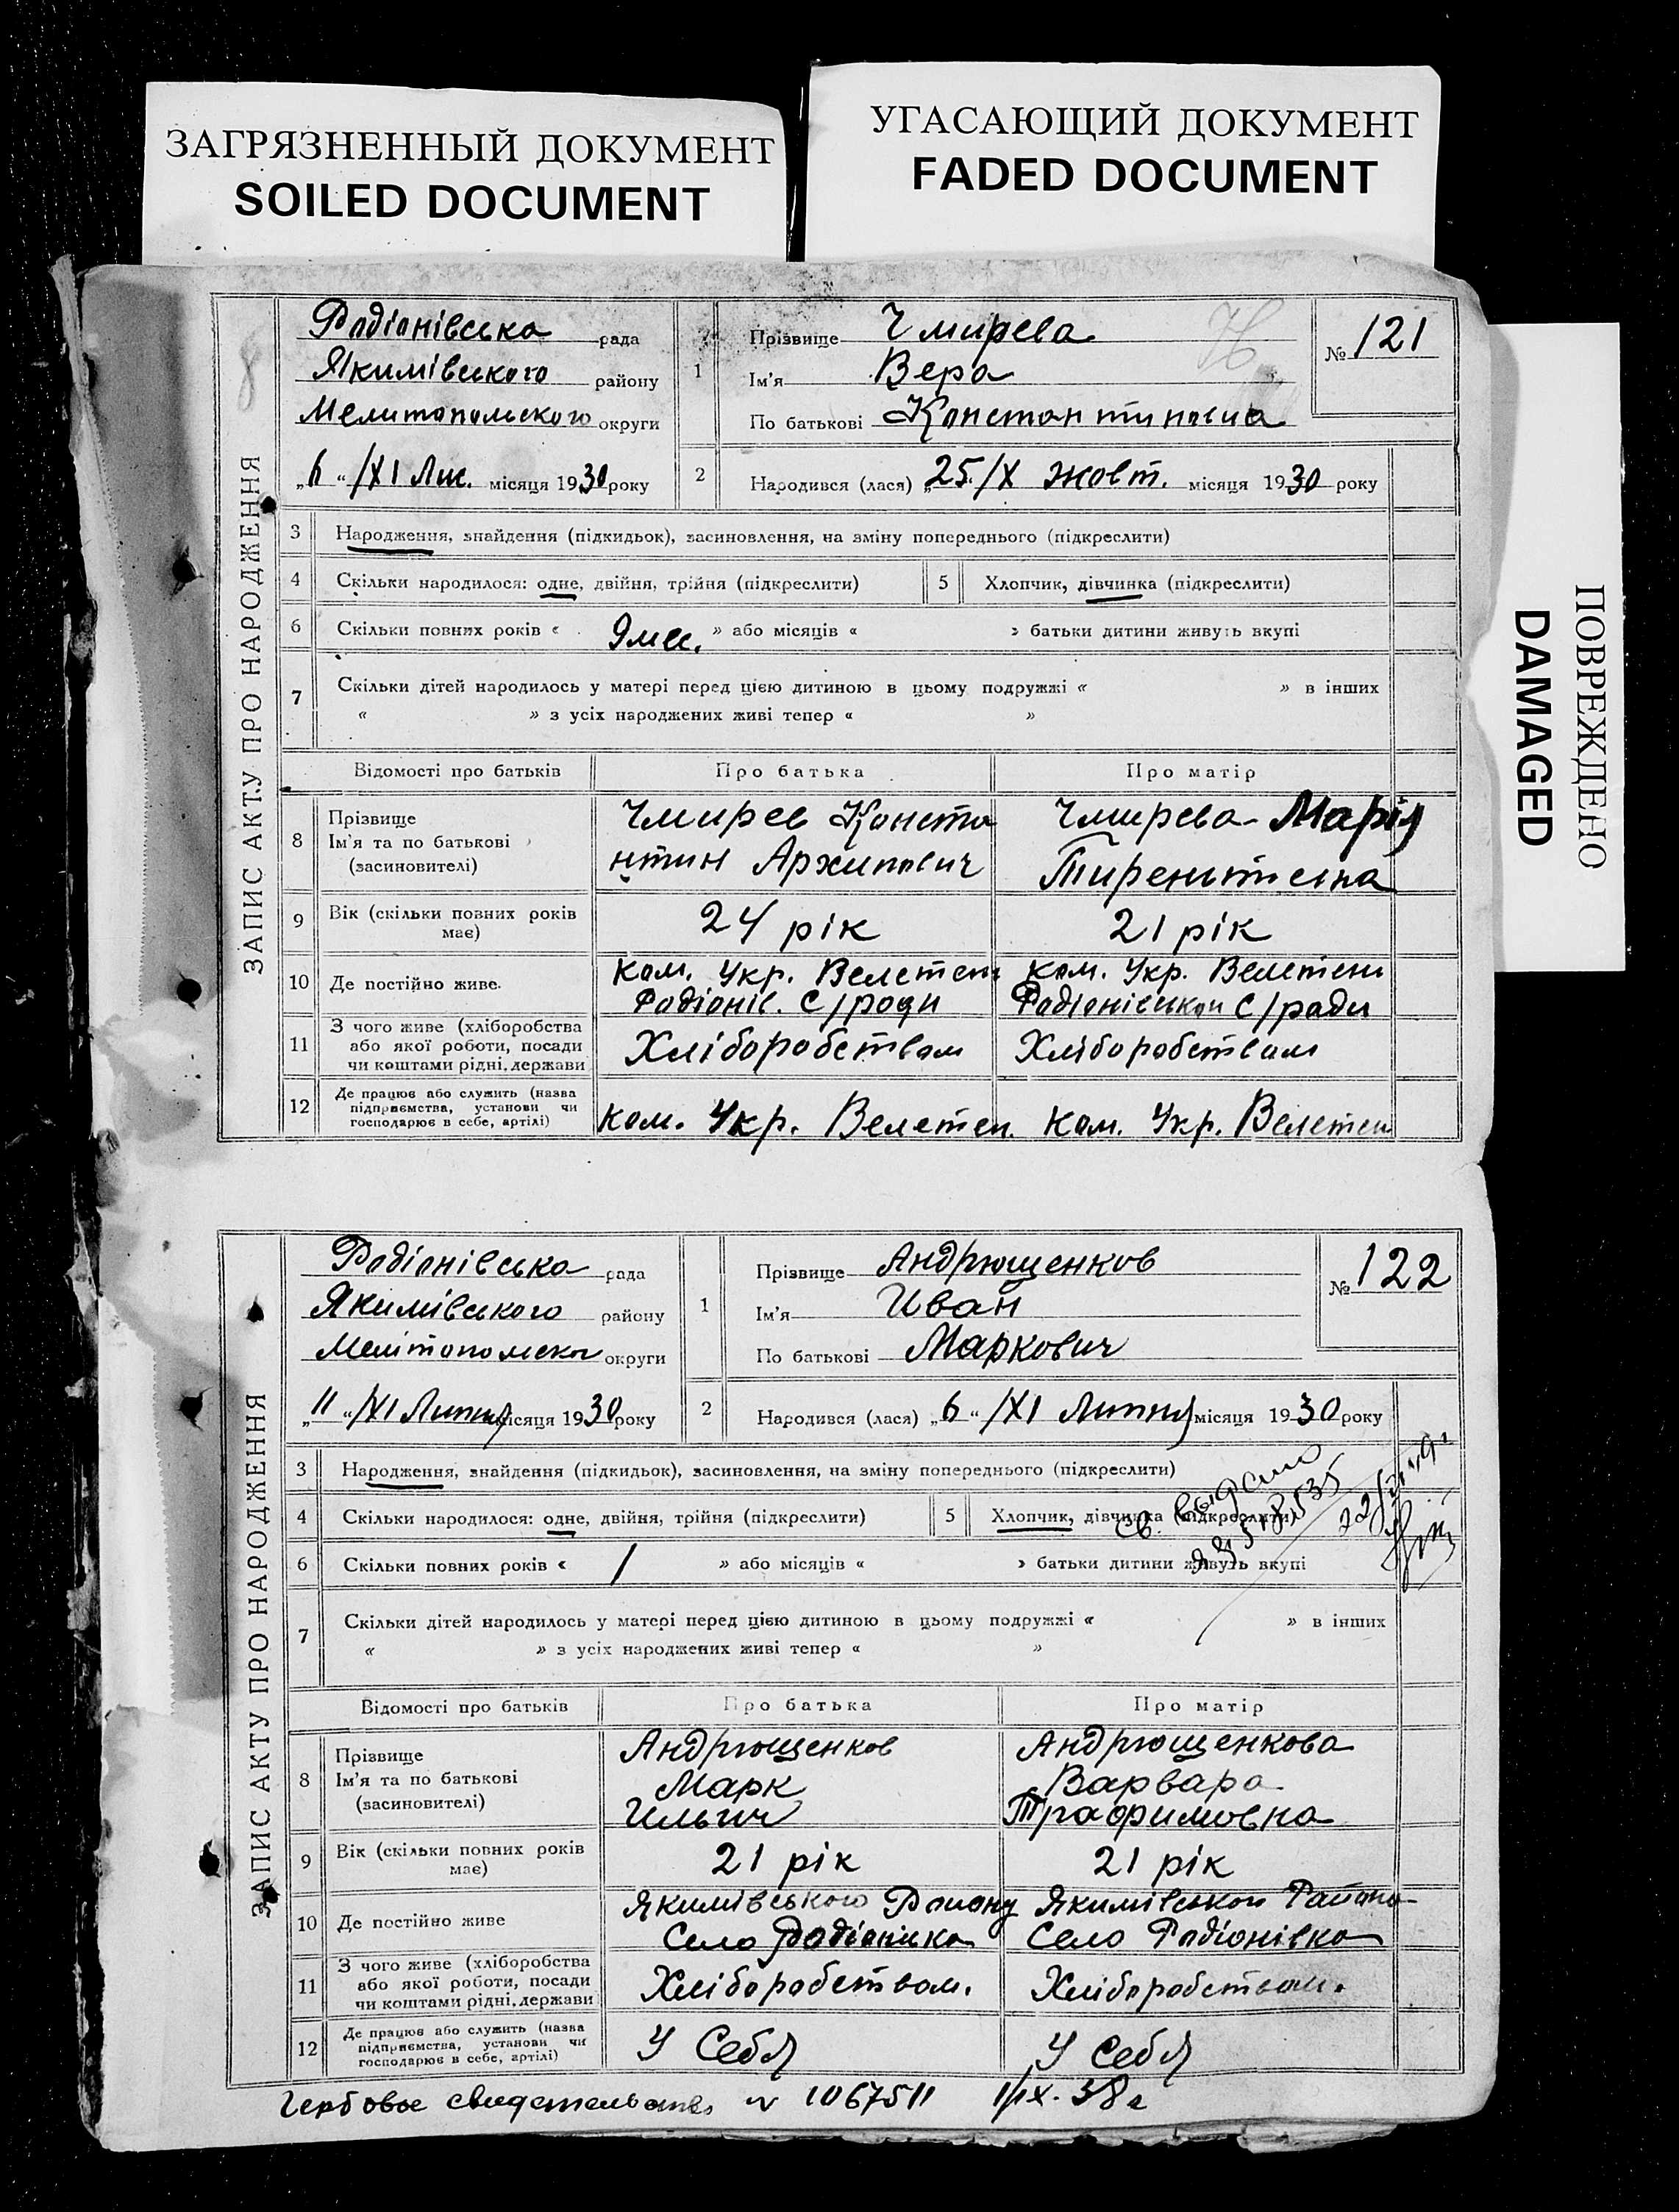 ЗАГРЯЗНЕННЫЙ ДОКУМЕНТ
SOILED DOCUMENT
УГАСАЮЩИЙ ДОКУМЕНТ
FADED DOCUMENT
ПОВРЕЖДЕНО
DAMAGED
ЗАПИС АКТУ ПРО НАРОДЖЕННЯ
Радіонівська рада
Якимівського району
Мелитопольского округи
„6“ /XI Лис. місяця 1930 року
1 Прізвище Чмирева
Ім'я Вера
По батькові Константиновна
№ 121
2 Народився (лася) „25./X жовт. місяця 1930 року
3 Народження, знайдення (підкидьок), засиновлення, на зміну попереднього (підкреслити)
4 Скільки народилося: одне, двійня, трійня (підкреслити) 5 Хлопчик, дівчинка (підкреслити)
6 Скільки повних років « 9 мес. » або місяців « » батьки дитини живуть вкупі
7 Скільки дітей народилось у матері перед цією дитиною в цьому подружжі « » в інших
« » з усіх народжених живі тепер « »
Відомості про батьків Про батька Про матір
8 Прізвище Ім'я та по батькові (засиновителі)
Чмирев Конста
нтин Архипович
Чмирева Марія
Тирентьевна
9 Вік (скільки повних років має) 24 рік 21 рік
10 Де постійно живе.
ком. Укр. Велетень
Радіонів. С/ради
ком. Укр. Велетень
Радіонівськой С/ради
11 З чого живе (хліборобства або якої роботи, посади чи коштами рідні, держави
Хліборобством Хліборобством
12 Де працює або служить (назва підприємства, установи чи господарює в себе, артілі)
ком. Укр. Велетен. ком. Укр. Велетен
ЗАПИС АКТУ ПРО НАРОДЖЕННЯ
Радіонівська рада
Якимівського району
округи
„11“ /XI Липня місяця 1930 року
1 Прізвище Андрющенков
Ім'я Иван
По батькові Маркович
№ 122
2 Народився (лася) „6“ /XI Липня місяця 1930 року
3 Народження, знайдення (підкидьок), засиновлення, на зміну попереднього (підкреслити)
4 Скільки народилося: одне, двійня, трійня (підкреслити) 5 Хлопчик, дівчинка (підкреслити)
6 Скільки повних років « 1 » або місяців « » батьки дитини живуть вкупі
7 Скільки дітей народилось у матері перед цією дитиною в цьому подружжі « » в інших
« » з усіх народжених живі тепер « »
Відомості про батьків Про батька Про матір
8 Прізвище Ім'я та по батькові (засиновителі)
Андрющенков
Марк
Ильич
Андрющенкова
Варвара
Трафимовна
9 Вік (скільки повних років має) 21 рік 21 рік
10 Де постійно живе
Якимівського Району
Село
Якимівськой
Село Радіонівка
11 З чого живе (хліборобства або якої роботи, посади чи коштами рідні, держави
Хліборобством. Хліборобством.
12 Де працює або служить (назва підприємства, установи чи господарює в себе, артілі)
У Себя У Себя
Гербовое свидетельство № 1067511 1/IX. 38 г